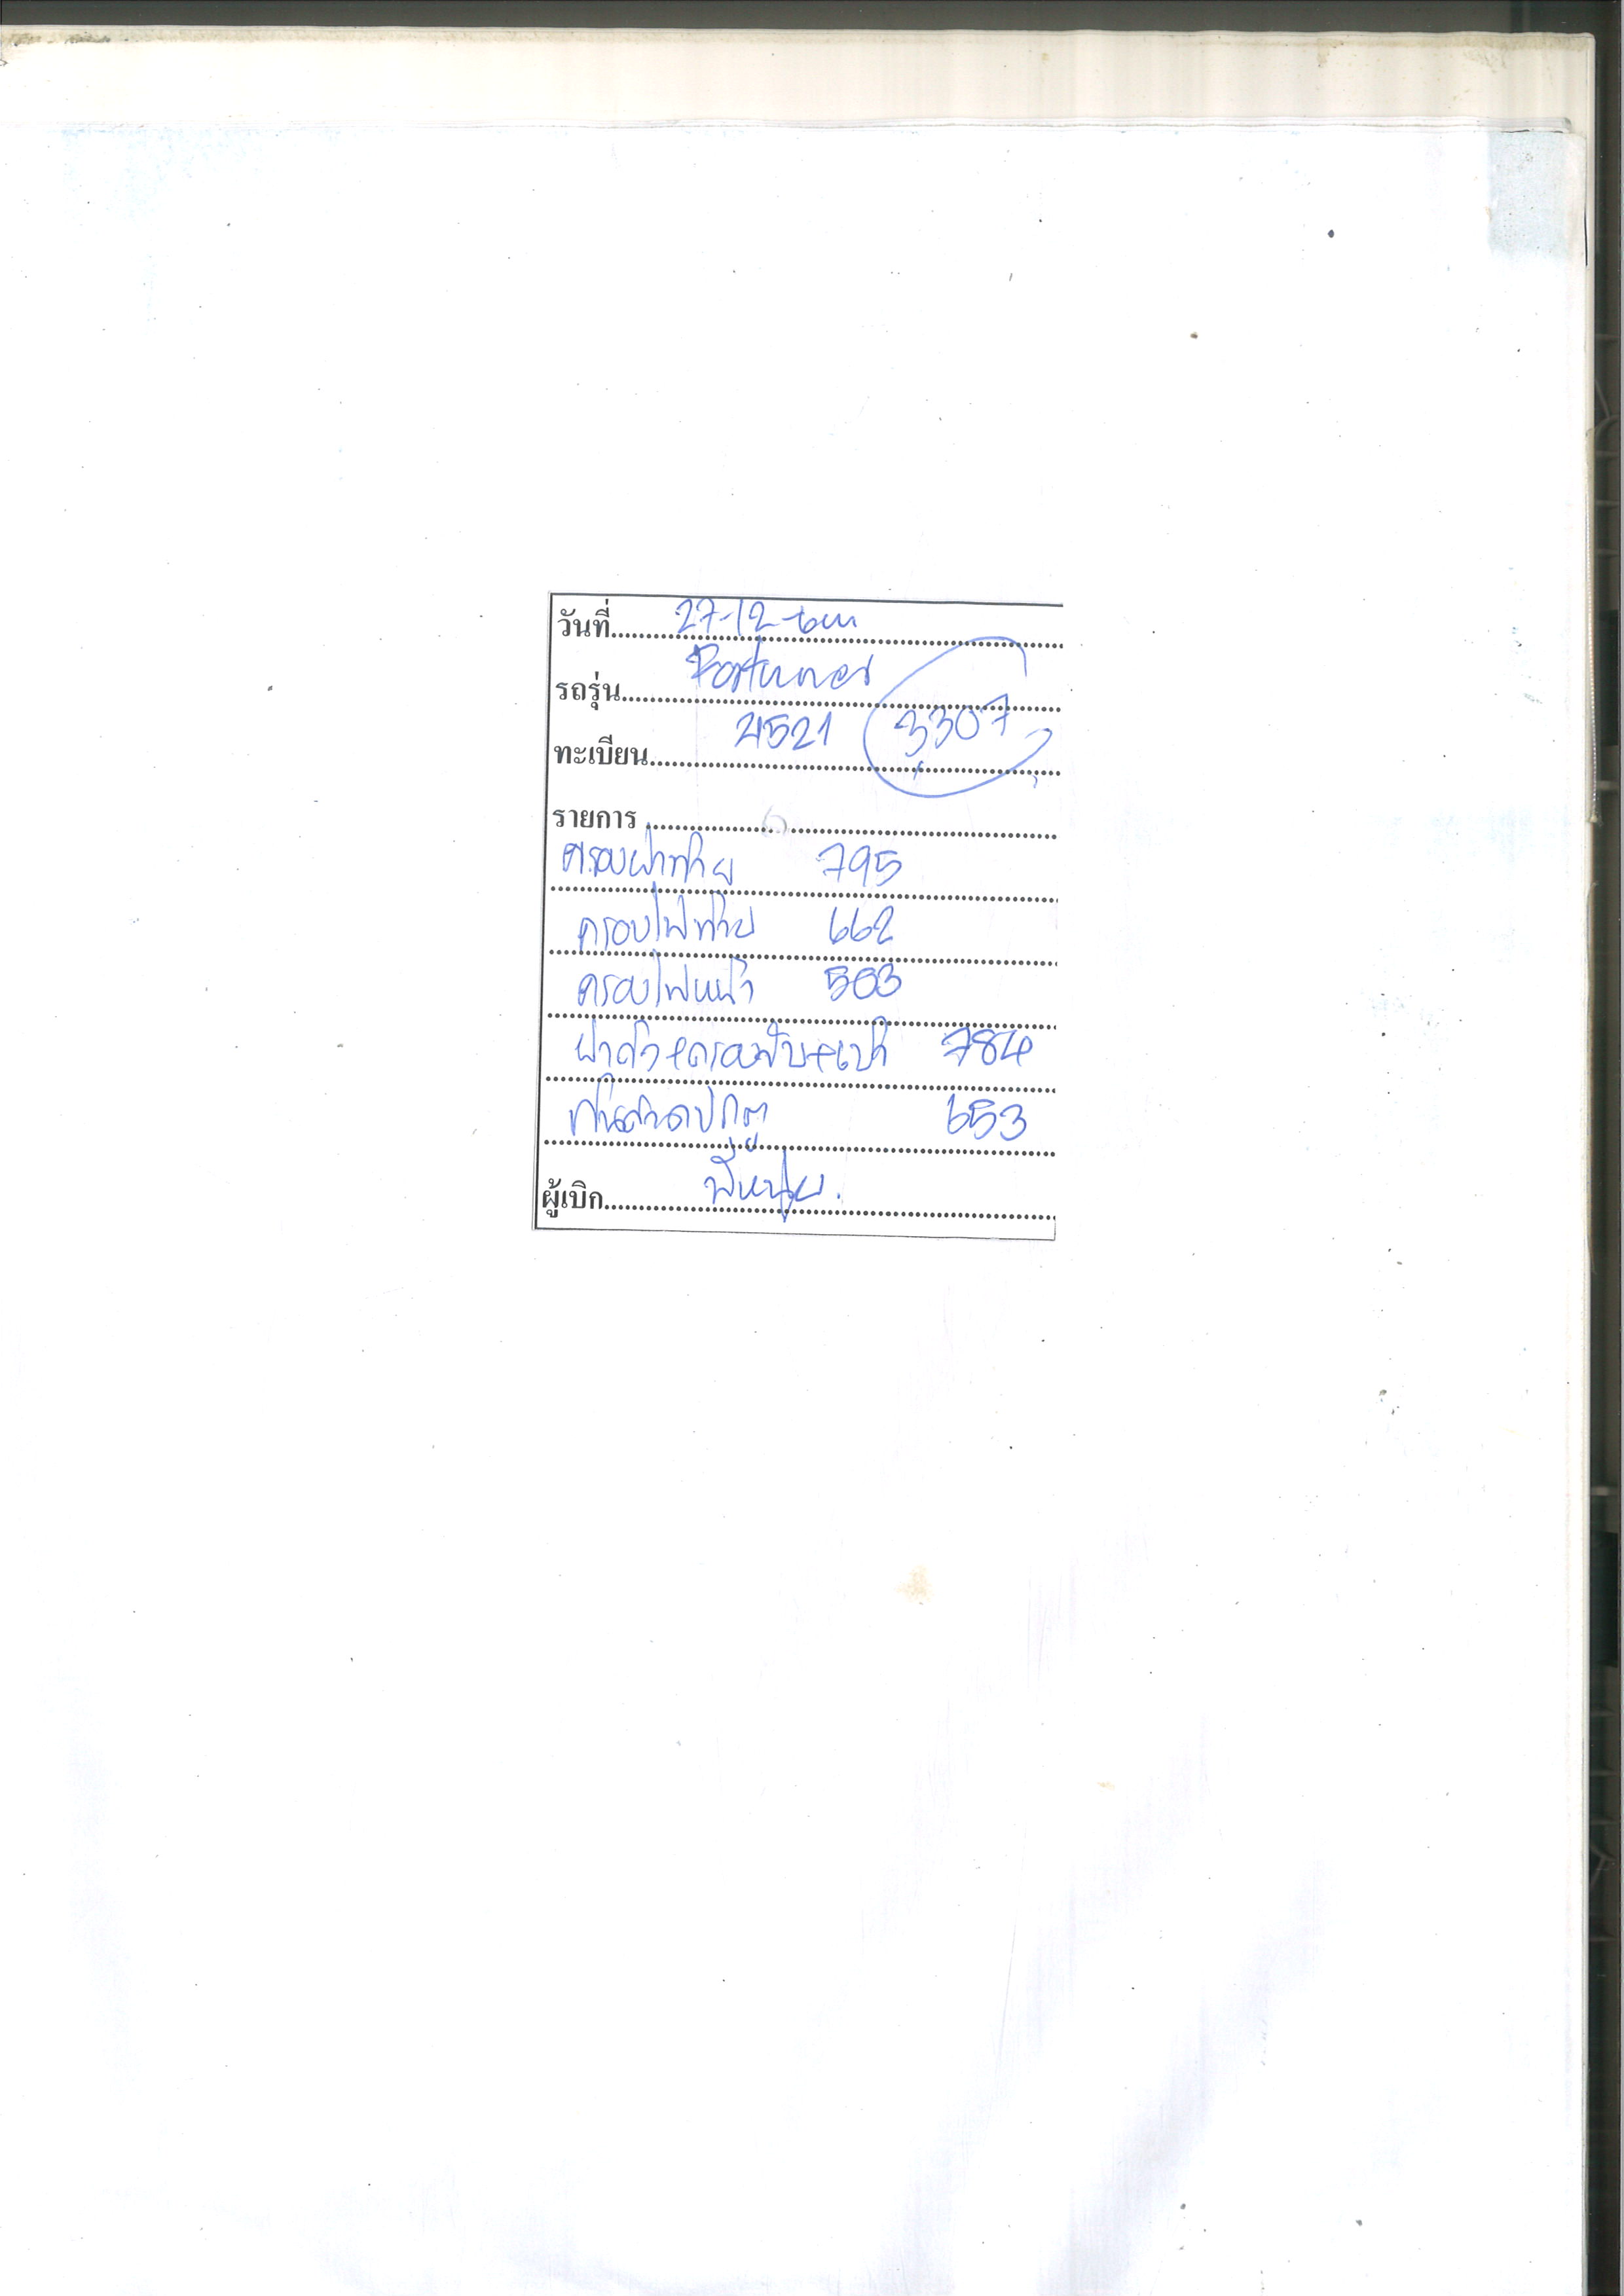 วันที่ 27-12-
รถรุ่น Fortuner
ทะเบียน 4521 3307
รายการ
ครอบฝาท้าย 795
ครอบไฟท้าย 662
ครอบไฟหน้า 503
ฝาถัง+ครอบจับ+เบ้า 784
กันสาดประตู 653
ผู้เบิก พี่หนุ่ย.